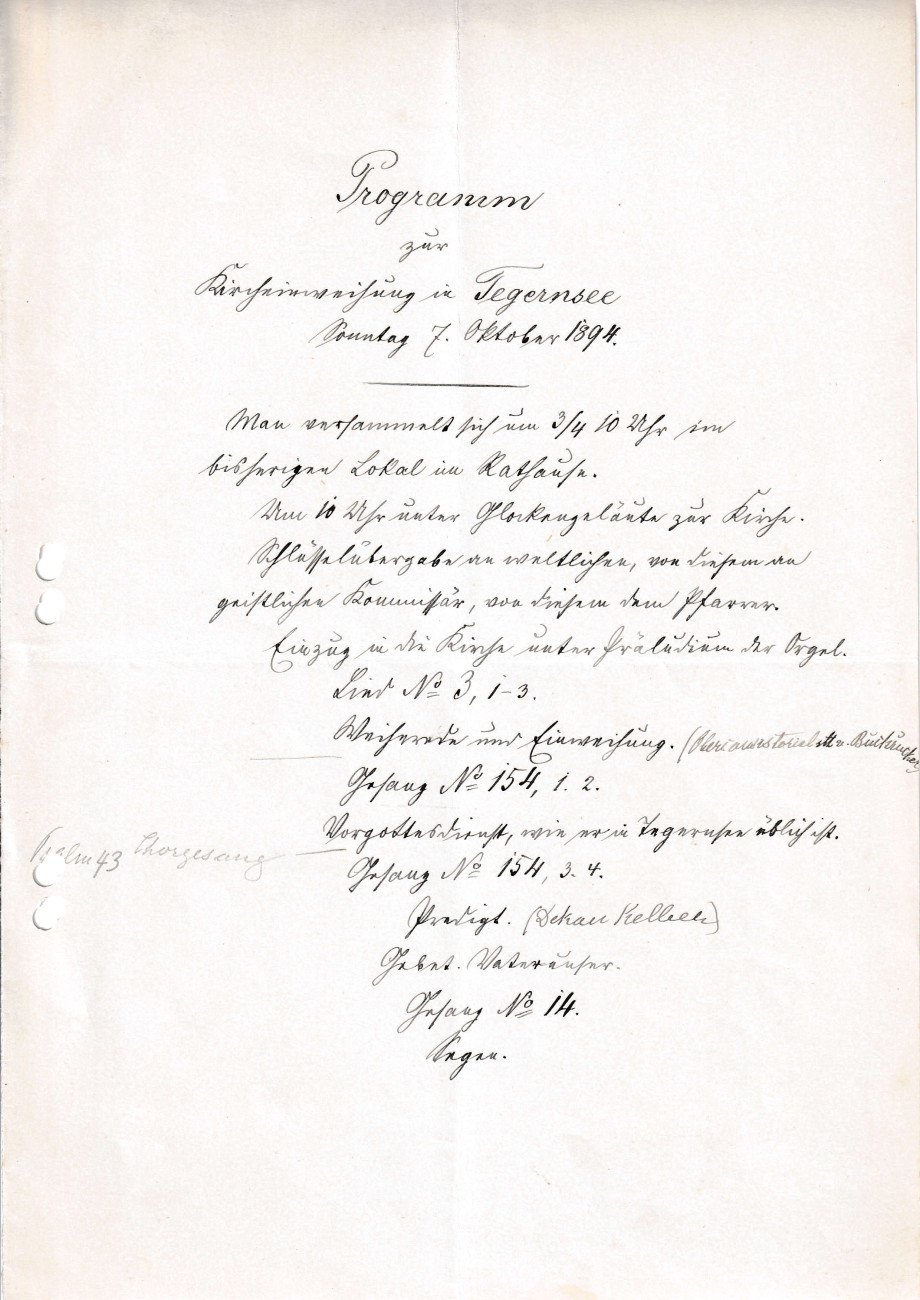 Programm
zur
Kircheinweihung in Tegernsee
Sonntag 7. Oktober 1894.
Man versammelt sich um 3/4 10 Uhr im
bisherigen Lokal im Rathause.
Um 10 Uhr unter Glockengeläute zur Kirche.
Schlüsselübergabe an weltlichen, von diesem an
geistlichen Kommissär, von diesem dem Pfarrer.
Einzug in die Kirche unter Präludium der Orgel.
Lied No 3, 1-3.
Weiherede und Einweihung. (Oberconsistorialrat v. Buchrucker)
Gesang No 154, 1. 2.
Vorgottesdienst, wie er in Tegernsee üblich ist.
Psalm 43 Chorgesang
Gesang No 154, 3. 4.
Predigt. (Dekan Kelber)
Gebet. Vaterunser.
Gesang No 14.
Segen.